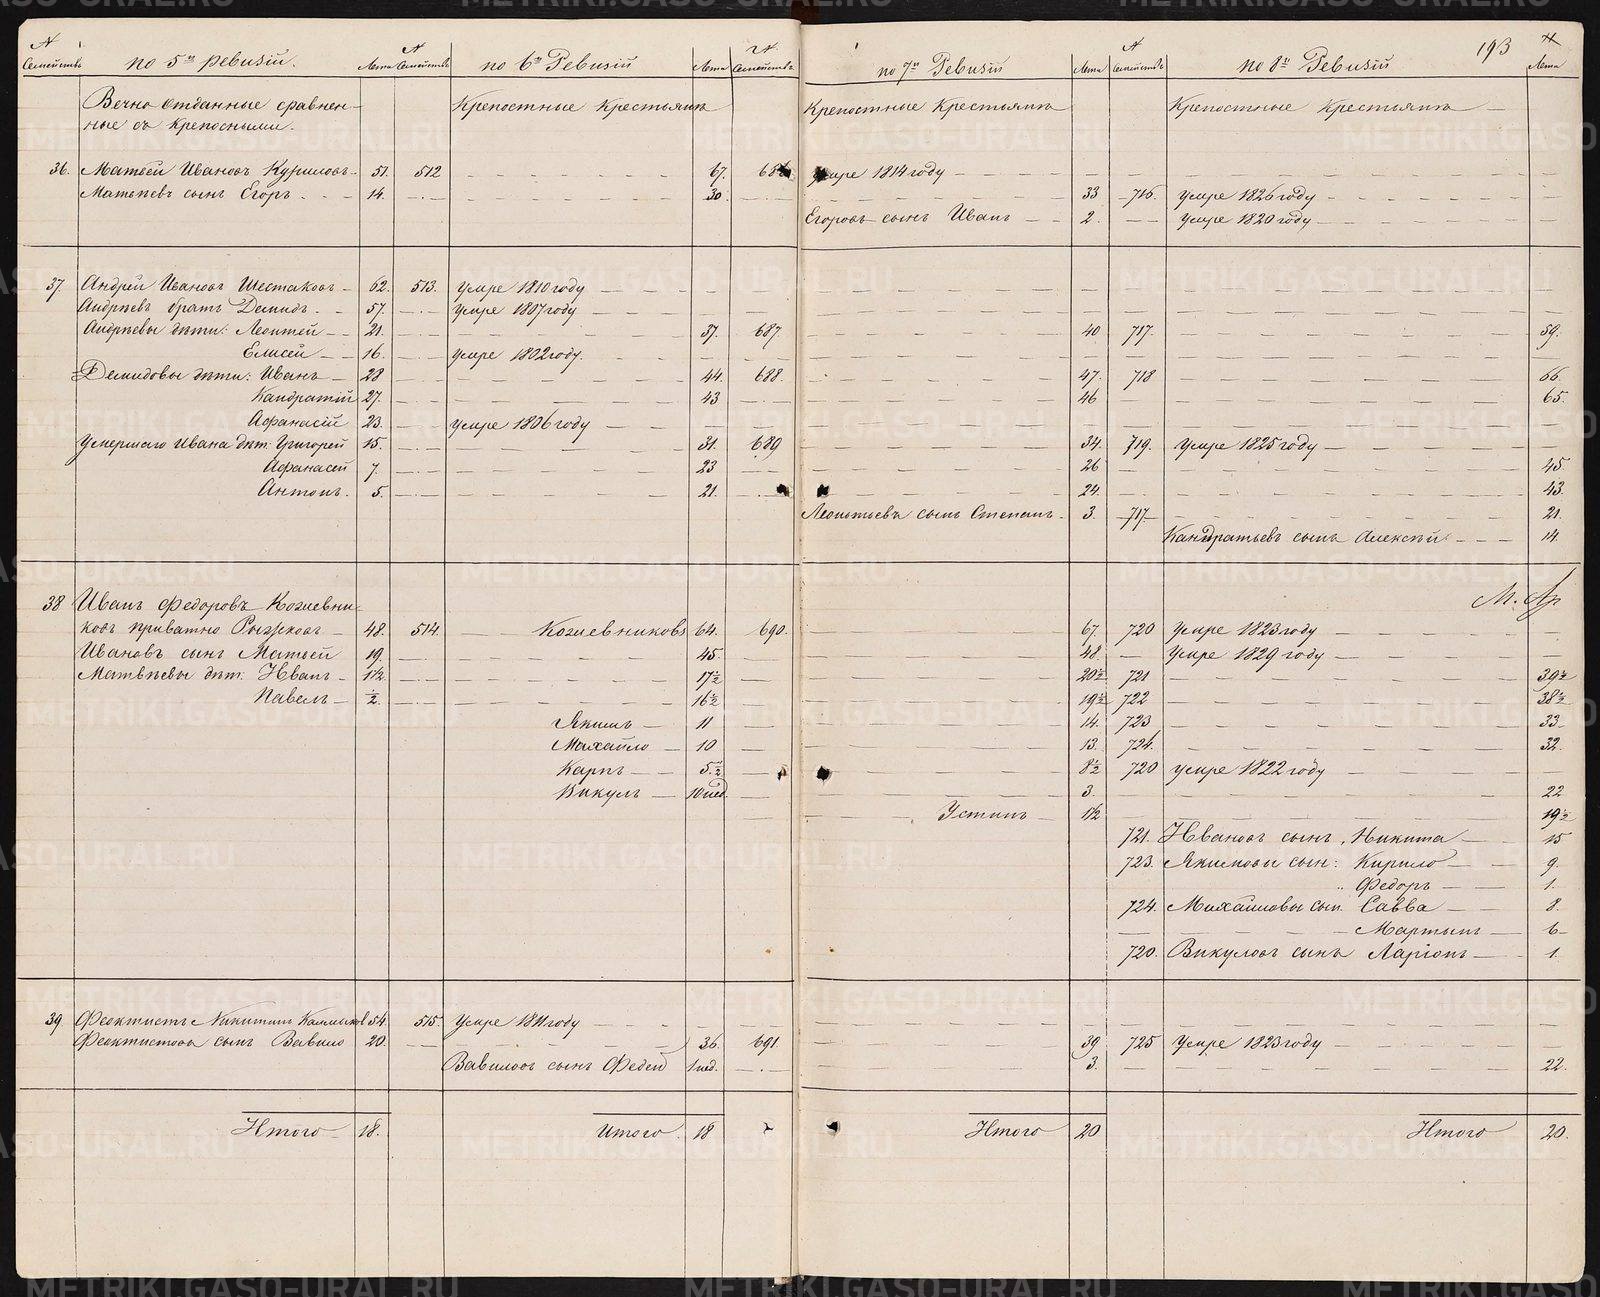 193
№ Семействъ по 5й ревизіи. Лета № Семействъ по 6й Ревизіи Лета № Семействъ по 7й Ревизіи Лета № Семействъ по 8й Ревизіи Лета
Вечно отданные сравнен- Крепостные Крестьяня Крепостные Крестьяня Крепостные Крестьяня
ные съ крепосными.
36. Матвей Ивановъ Куриловъ 51. 512 67. умре 1814 году
Матвеевъ сынъ Егоръ 14. 30. 33 716. умре 1826 году
Егоровъ сынъ Иванъ 2. умре 1820 году
37 Андрей Ивановъ Шестаковъ 62. 513. умре 1810 году
Андреевъ братъ Демидъ 57. умре 1807 году
Андреевы дети: Леонтей 21. 37. 687. 40 717. 59.
Елисей 16. умре 1802 году.
Демидовы дети: Иванъ 28 44. 688. 47. 718 66.
Кандратій 27. 43 46 65.
Афанасій 23. умре 1806 году
Умершаго Ивана дет: Григорей 15. 31. 689 34. 719. умре 1825 году
Афанасей 7. 23 26 45.
Антонъ. 5. 21. 24. 43.
Леонтьевъ сынъ Степанъ 3. 717 21.
Кандратьевъ сынъ Алексей 14.
М. Ар
38 Иванъ Федоровъ Кожевни-
ковъ приватно Рыжковъ 48. 514. Кожевниковъ 64. 690. 67. 720 умре 1823 году
Ивановъ сынъ Матвей 19. 45. 48. умре 1829 году
Матвеевы дет: Иванъ 1½ 17½ 20½ 721 39½
Павелъ ½. 16½ 19½ 722 38½
Якимъ 11 14. 723 33
Михайло 10 13. 724. 32.
Карпъ 5.½ 8½ 720 умре 1822 году
Викулъ 10 нед. 3. 22
Устинъ 1½ 19½
721. Ивановъ сынъ Никита 15
723. Якимовы сын: Кирило 9.
Федоръ 1.
724. Михайловы сын. Савва 8.
Мартынъ 6
720. Викуловъ сынъ Ларіонъ 1.
39 Феоктистъ Никитинъ 54. 515. Умре 1811 году
Феоктистовъ сынъ Вавило 20. 36. 691 39 725 Умре 1823 году
Вавиловъ сынъ Федей 1 нед. 3. 22.
Итого 18. Итого 18 Итого 20 Итого 20.
METRIKI.GASO-URAL.RU